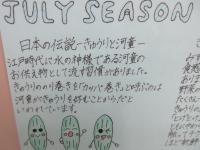 JULY SEASON
日本の伝説 ーきゅうりと河童ー
江戸時代に水の神様である河童の
お供え物として流す習慣がありました。
きゅうりのり巻きを「カッパ巻き」と呼ぶのは
河童がきゅうりを好むことからだと
いわれています。